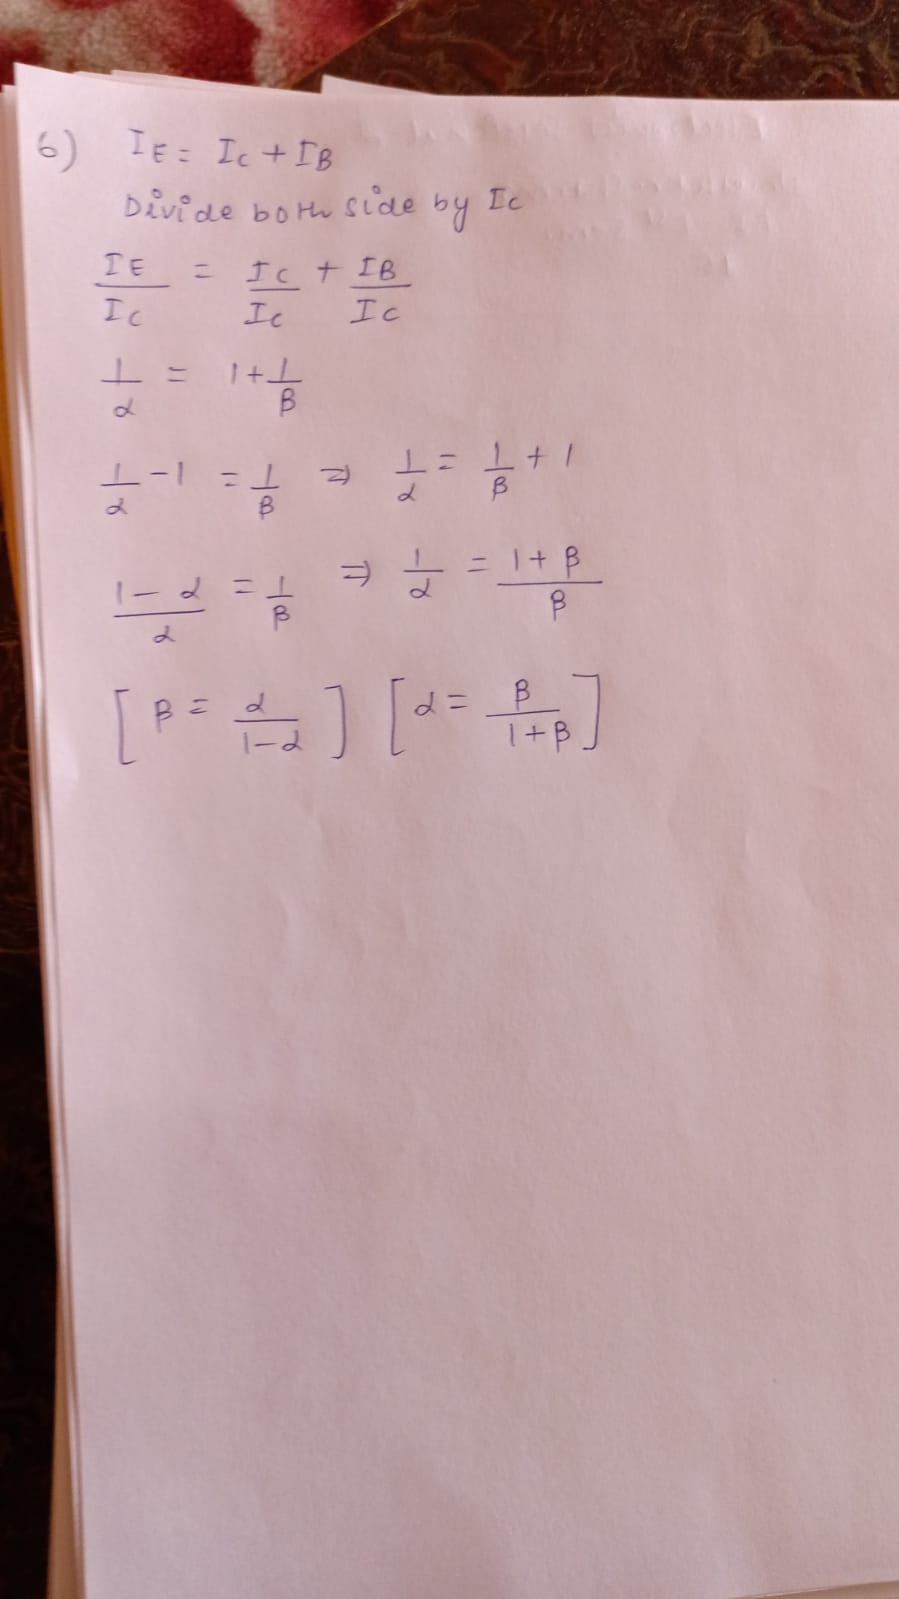 6) IE = Ic + IB
Divide both side by Ic
IE/Ic = Ic/Ic + IB/Ic
1/α = 1 + 1/β
1/α - 1 = 1/β ⇒ 1/α = 1/β + 1
1-α/α = 1/β ⇒ 1/α = 1+β/β
[β = α/1-α] [α = β/1+β]